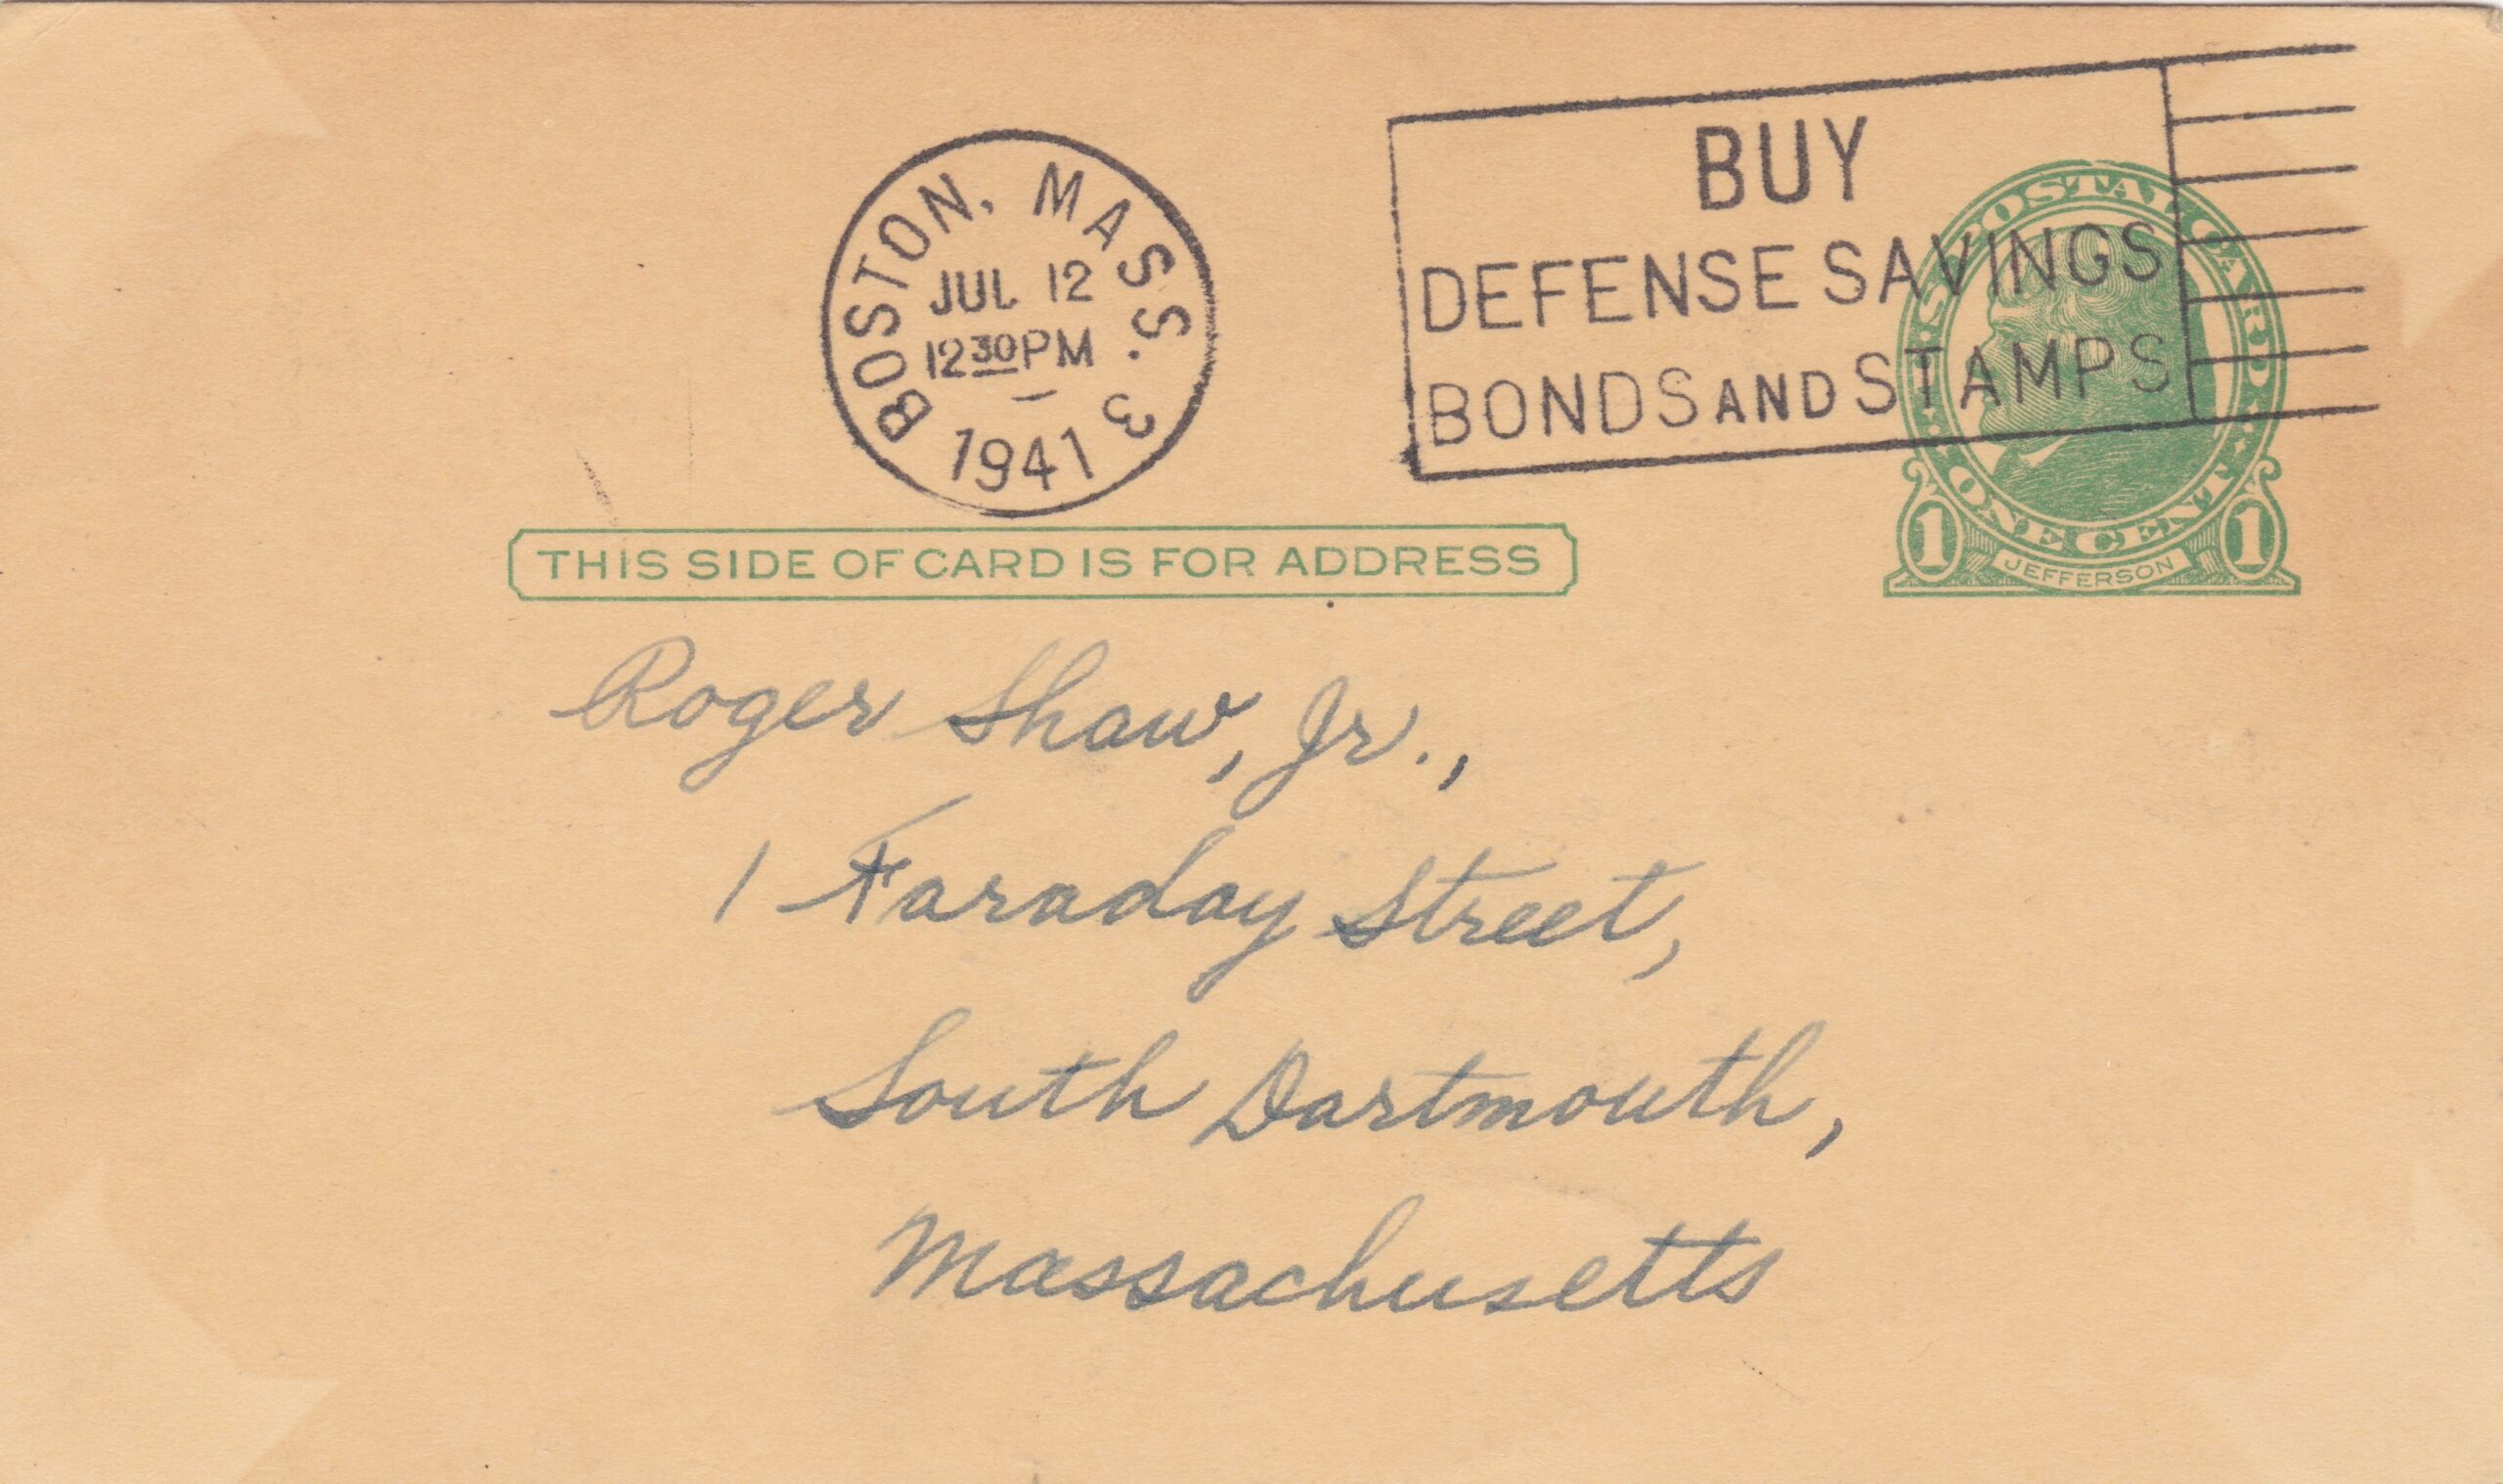 BOSTON, MASS. 3
JUL 12
12 30 PM
1941
BUY
DEFENSE SAVINGS
BONDS AND STAMPS
U.S. POSTAL CARD
ONE CENT
1 JEFFERSON 1
THIS SIDE OF CARD IS FOR ADDRESS
Roger Shaw, Jr.,
1 Faraday Street,
South Dartmouth,
Massachusetts